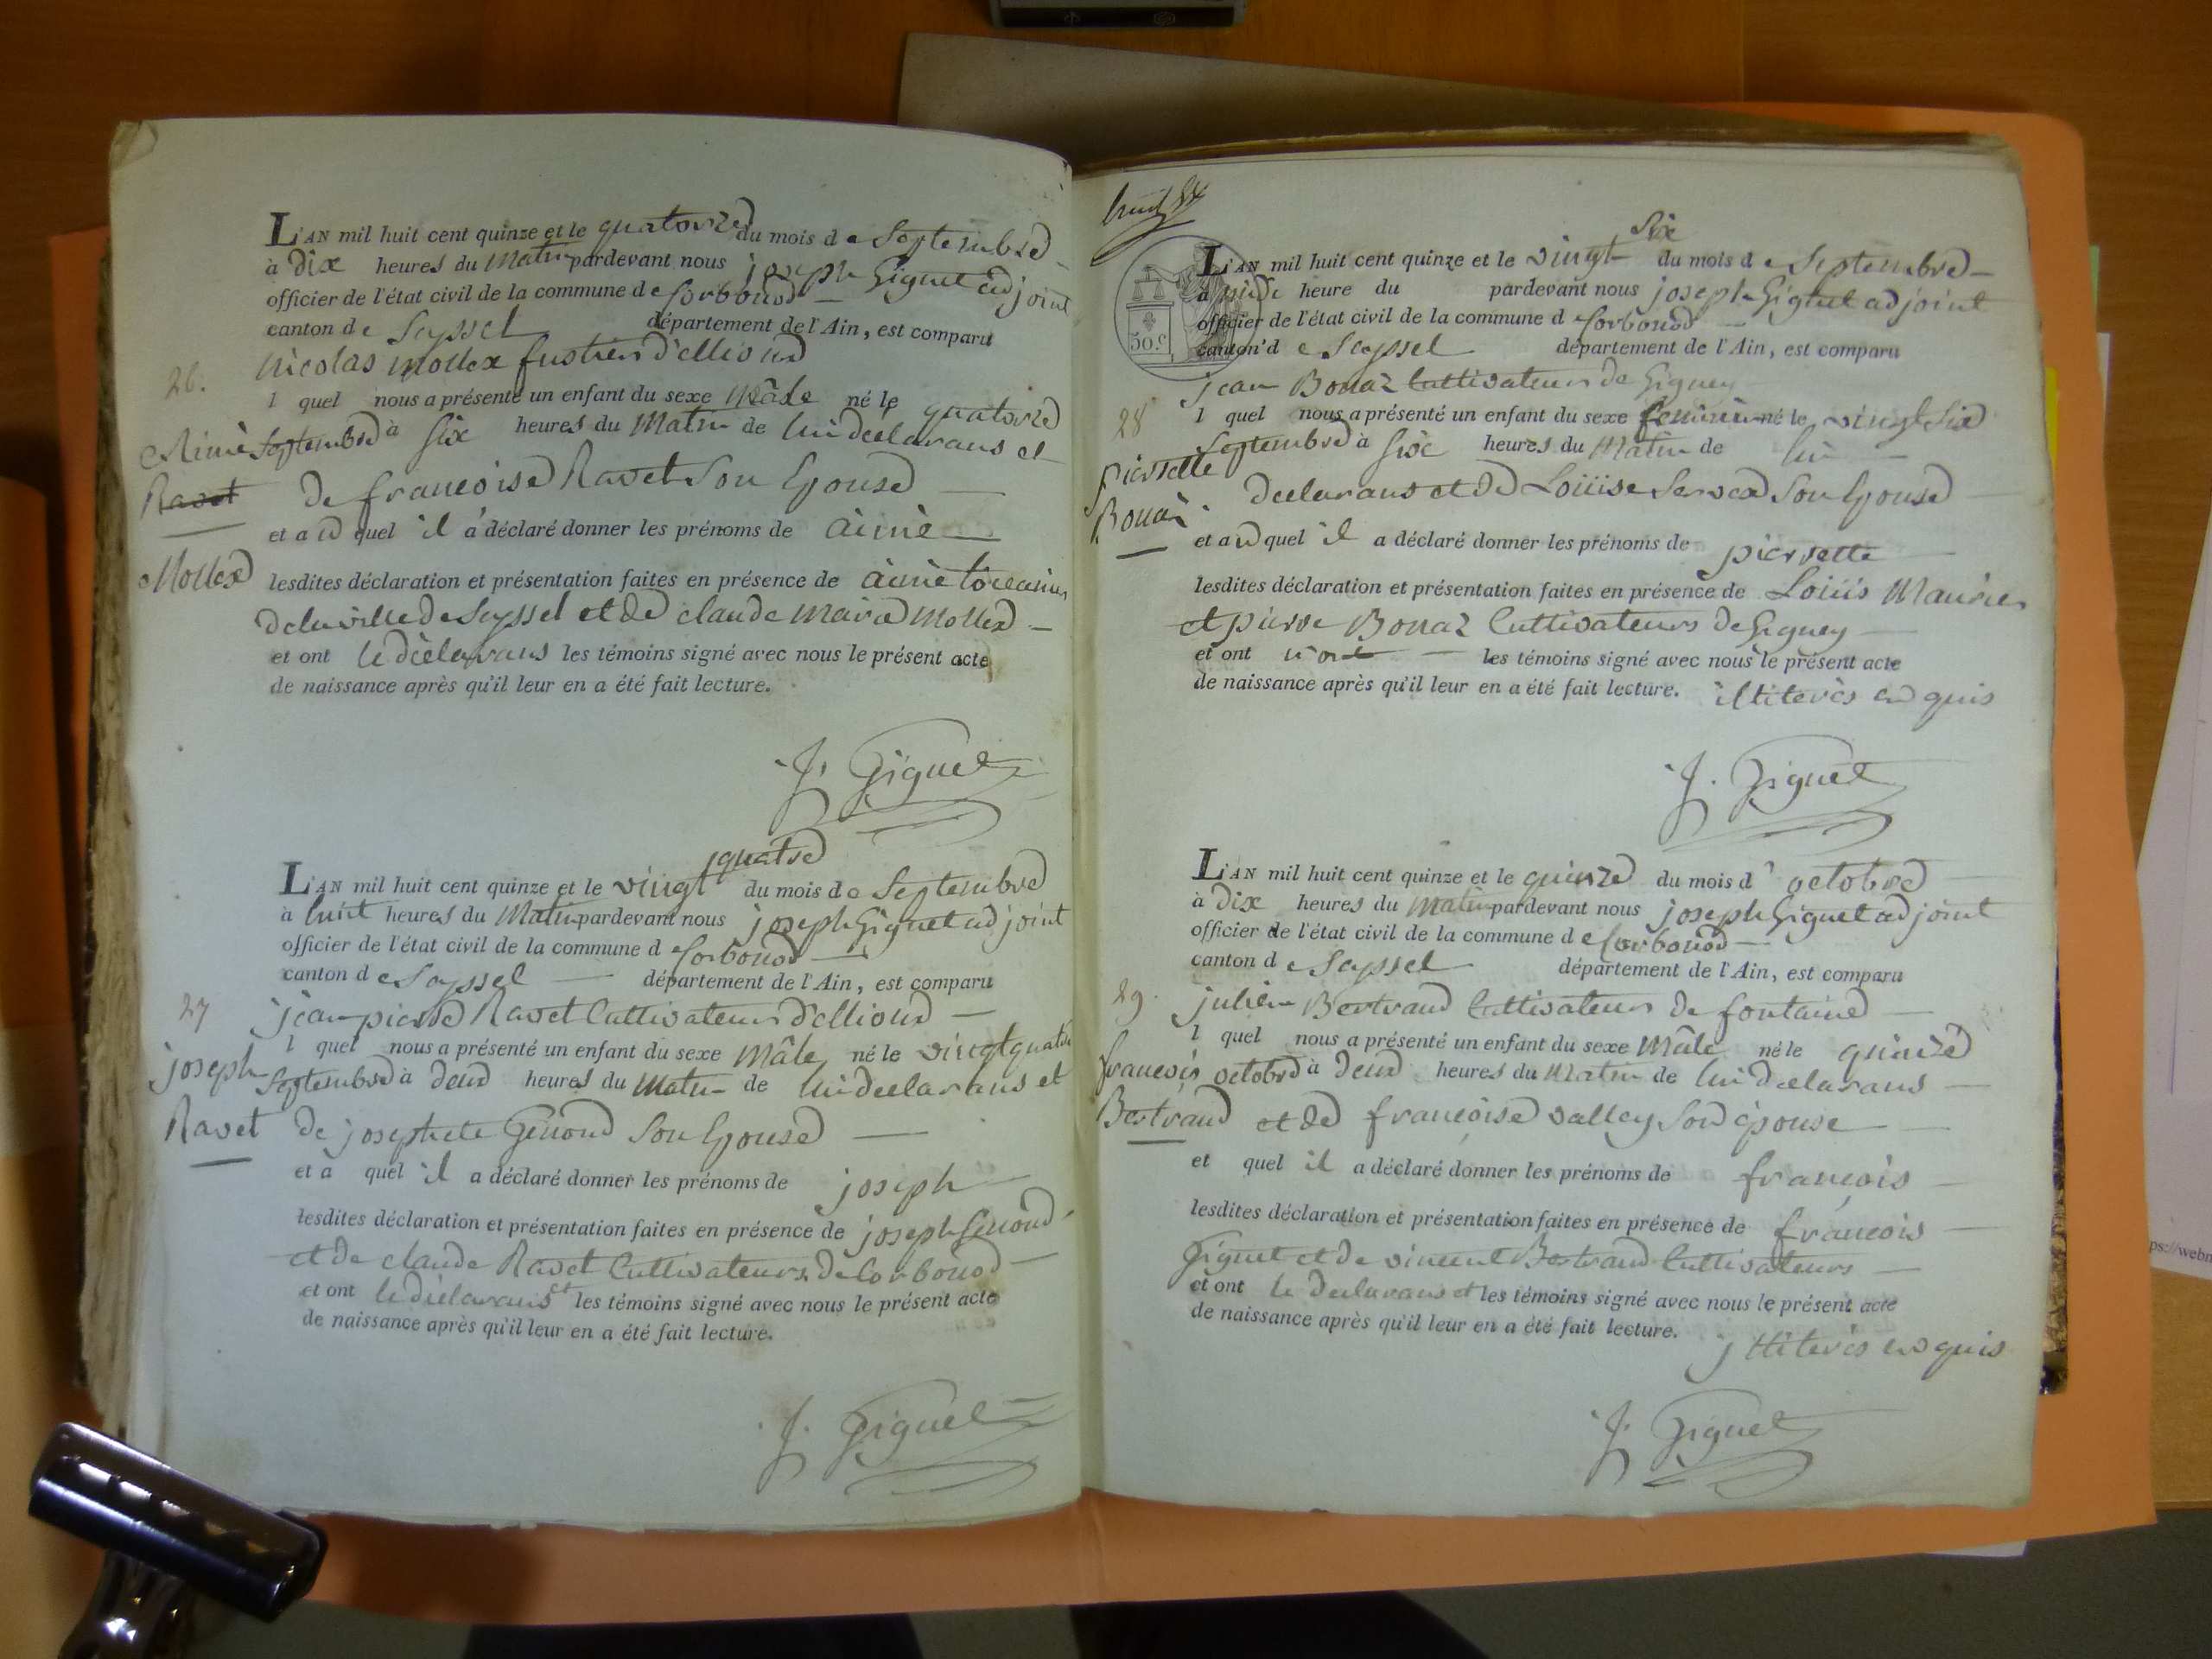 L'AN mil huit cent quinze et le quatorze du mois de Septembre
à dix heures du Matin pardevant nous joseph Giguet adjoint
officier de l'état civil de la commune de Corbonod
canton de Seyssel département de l'Ain, est comparu
Nicolas Mollex fustier d'ellioud
26.
l quel nous a présenté un enfant du sexe Mâle né le quatorze
Septembre à Six heures du Matin de lui déclarans et
Aimè
Ravet
de francoise Ravet Son Epouse
et a u quel il a déclaré donner les prénoms de aimè
Mollex
lesdites déclaration et présentation faites en présence de aimè
de la ville de Seyssel et de claude Marie Mollex
et ont le dèclarans les témoins signé avec nous le présent acte
de naissance après qu'il leur en a été fait lecture.
J. Giguet
L'AN mil huit cent quinze et le vingt quatre du mois de Septembre
à huit heures du Matin pardevant nous joseph Giguet adjoint
officier de l'état civil de la commune de Corbonod
canton de Seyssel département de l'Ain, est comparu
27
jean pierre Ravet Cultivateur d'ellioud
l quel nous a présenté un enfant du sexe Mâle né le vingt quatre
joseph
Septembre à deux heures du Matin de lui declarans et
Ravet
de josephete Genond Son Epouse
et a quel il a déclaré donner les prénoms de joseph
lesdites déclaration et présentation faites en présence de joseph Genond
et de claude Ravet Cultivateurs de Corbonod
et ont le dèclarans et les témoins signé avec nous le présent acte
de naissance après qu'il leur en a été fait lecture.
J. Giguet
huit
30.C
L'AN mil huit cent quinze et le vingt Six du mois de Septembre
à midi heure du pardevant nous joseph Giguet adjoint
officier de l'état civil de la commune de Corbonod
canton de Seyssel département de l'Ain, est comparu
jean Bonaz Cultivateur de Gignez
28
l quel nous a présenté un enfant du sexe feminin né le vingt Six
Septembre à Six heures du Matin de lui
pierrette
Bonaz.
declarans et de Louise Servex Son Epouse
et a u quel il a déclaré donner les prénoms de pierrette
lesdites déclaration et présentation faites en présence de Louis Maurier
et pierre Bonaz Cultivateurs de Gignez
et ont n'ont les témoins signé avec nous le présent acte
de naissance après qu'il leur en a été fait lecture. illiterès enquis
J. Giguet
L'AN mil huit cent quinze et le quinze du mois d' octobre
à dix heures du Matin pardevant nous joseph Giguet adjoint
officier de l'état civil de la commune de Corbonod
canton de Seyssel département de l'Ain, est comparu
29.
julien Bertrand Cultivateur de fontaine
l quel nous a présenté un enfant du sexe Mâle né le quinze
francois
octobre à deux heures du Matin de lui declarans
Bertrand
et de francoise Valley Son èpouse
et quel il a déclaré donner les prénoms de francois
lesdites déclaration et présentation faites en présence de francois
Giguet et de vincent Bertrand Cultivateurs
et ont le declarans et les témoins signé avec nous le présent acte
de naissance après qu'il leur en a été fait lecture. jlliterès enquis
J. Giguet